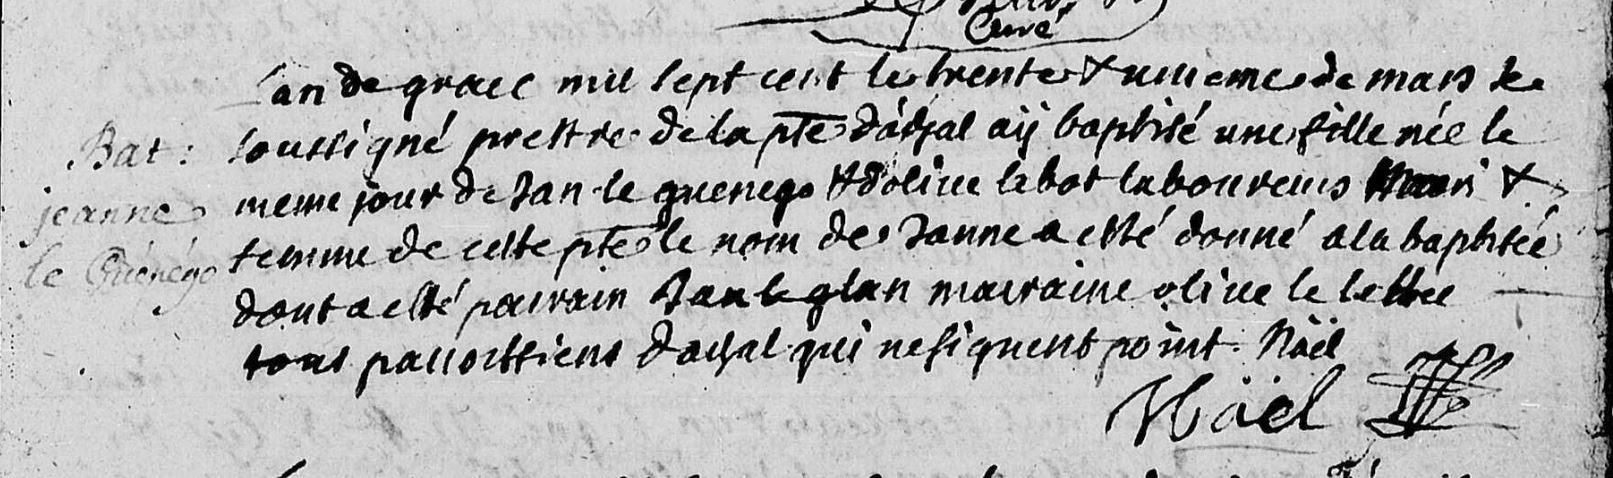 Curé
Lan de grace mil sept cent le trente & unieme de mars Je
soussigné prestre de la psse d'adjal aÿ baptisé une fille née le
Bat :
meme jour de Jan le guenego & dolive lebot laboureurs mari &
jeanne
femme de cette psse le nom de Janne a esté donné a la baptiséé
le Guénégo
dont a esté parrain Jan le glan marraine olive le
tous parroissiens dadjal qui ne signent point. Nöël
Nöël